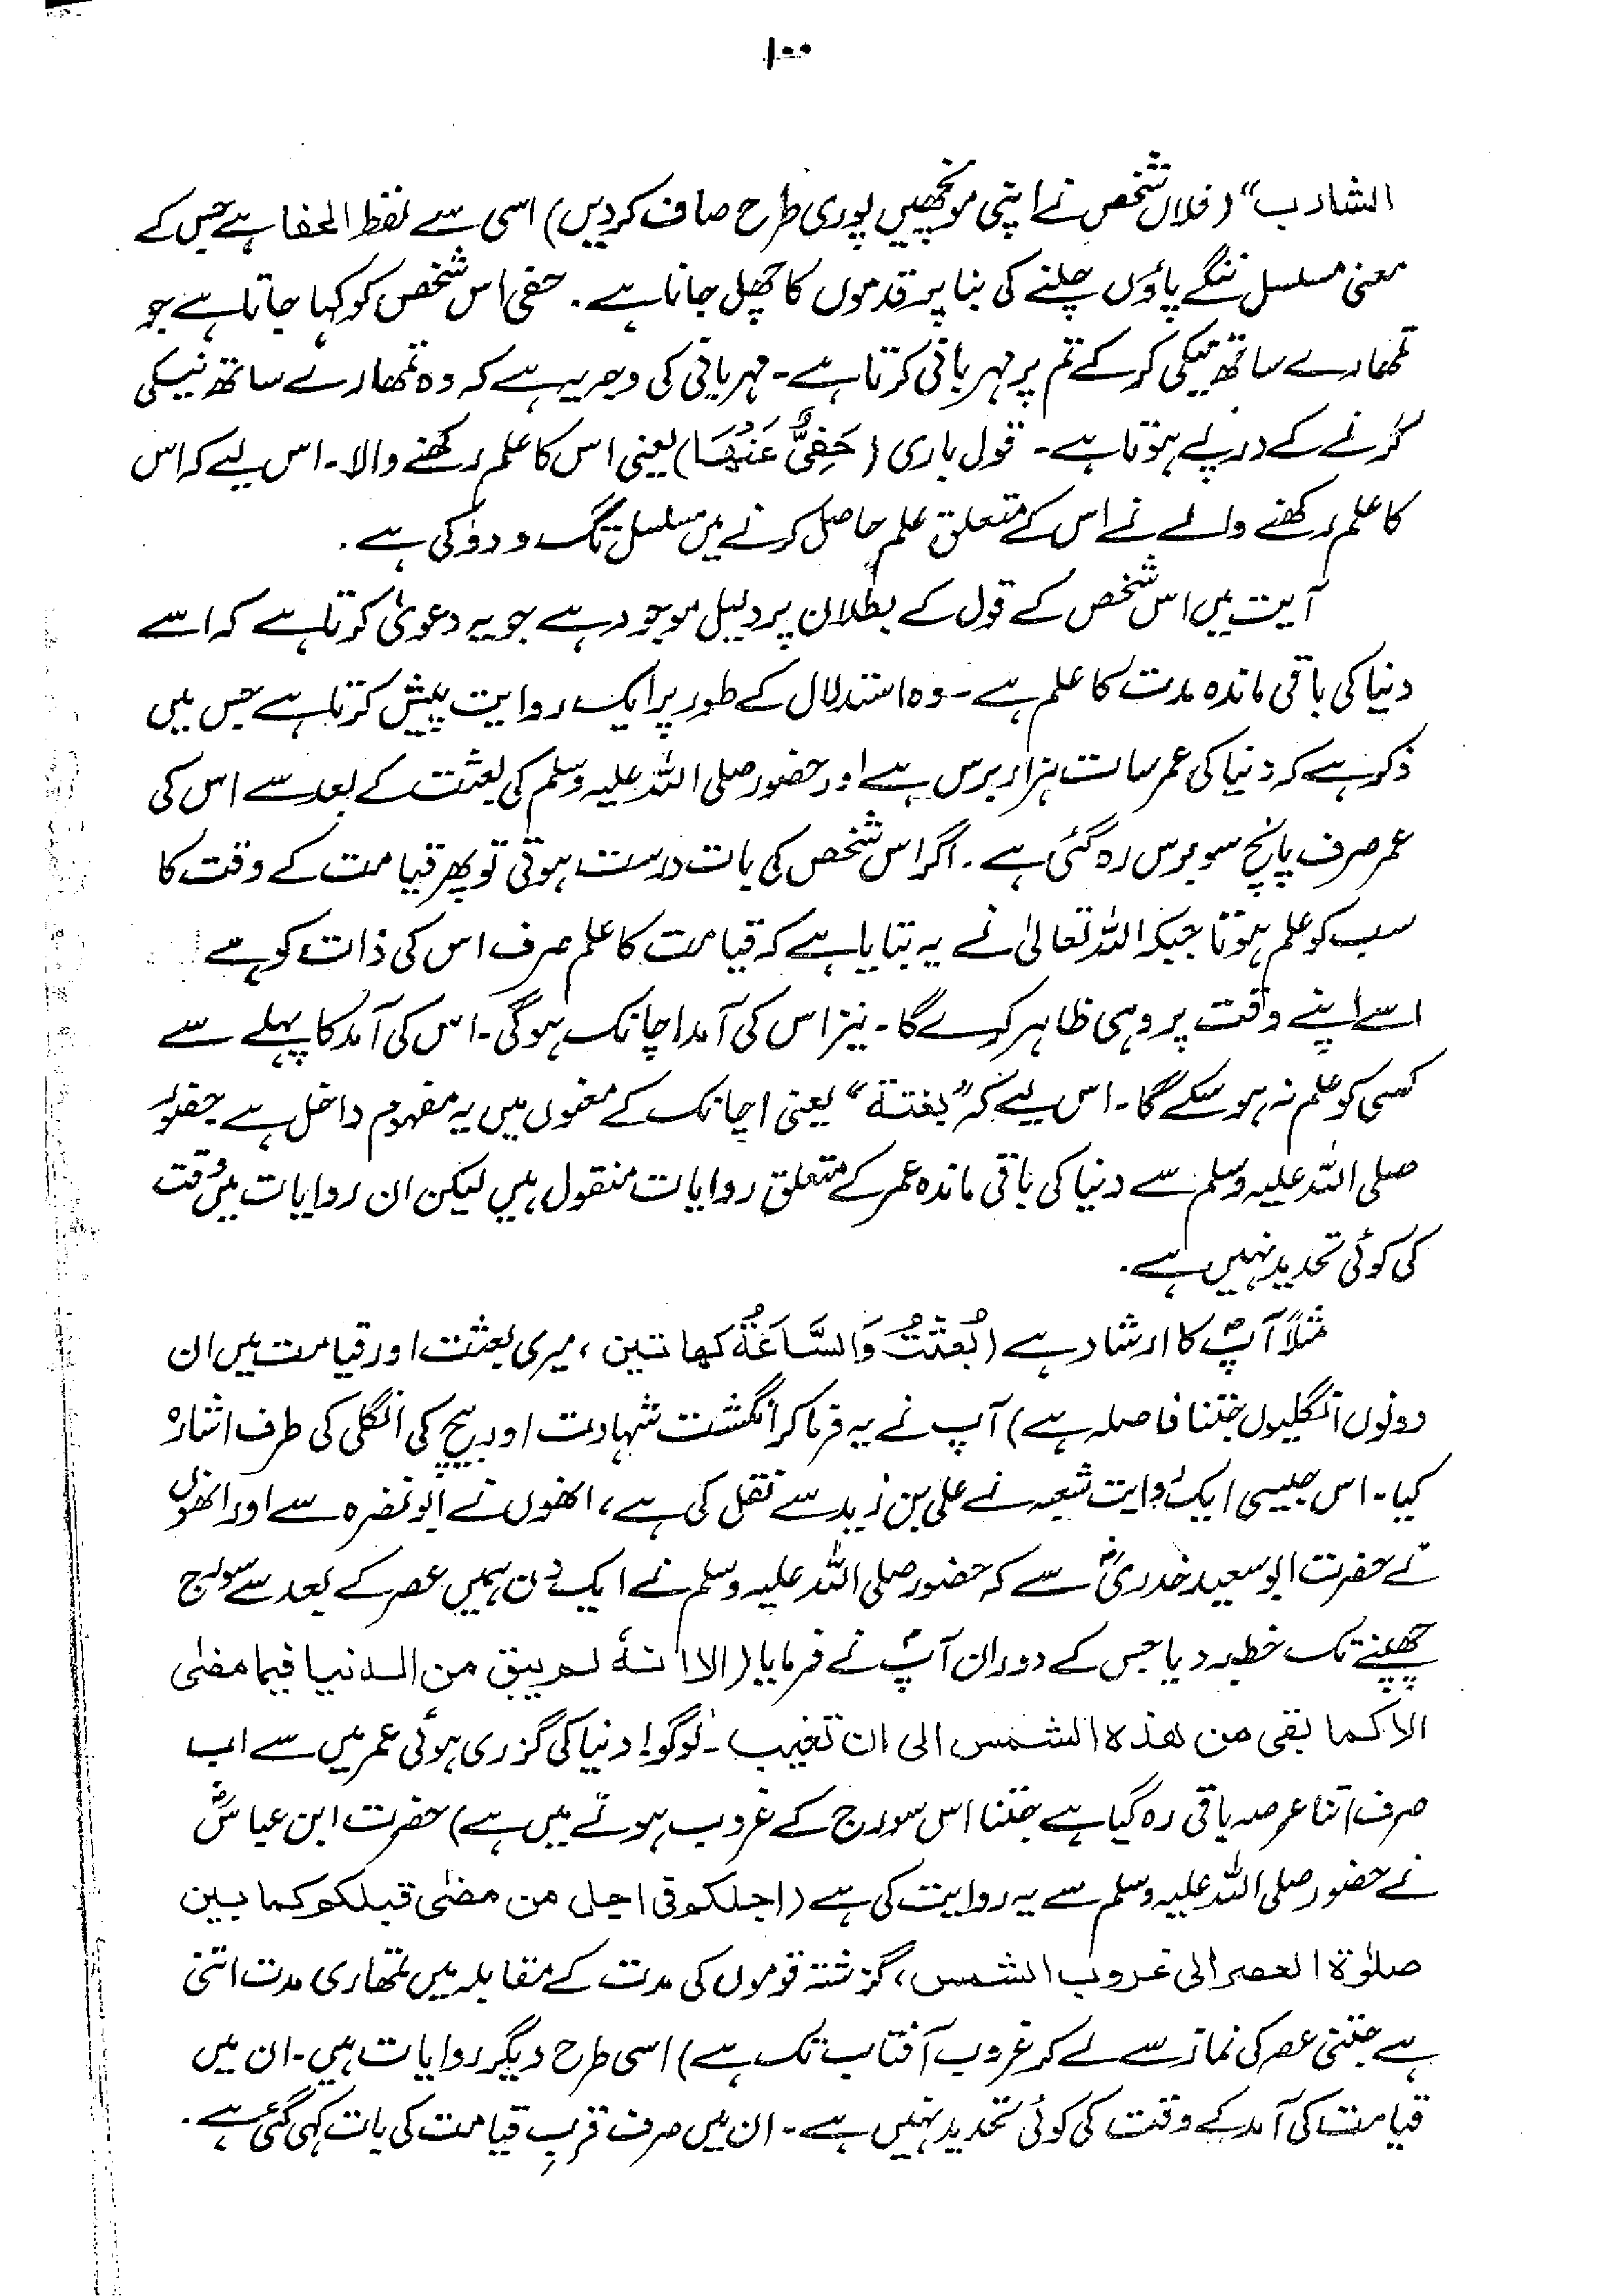 ۱۰۰
الشارب“ (فلاں شخص نے اپنی مونچھیں پوری طرح صاف کر دیں) اسی سے لفظ الحفا ہے جس کے
معنی مسلسل ننگے پاؤں چلنے کی بنا پر قدموں کا چھل جانا ہے۔ حفی اس شخص کو کہا جاتا ہے جو
تمھارے ساتھ نیکی کر کے تم پر مہربانی کرتا ہے۔ مہربانی کی وجہ یہ ہے کہ وہ تمھارے ساتھ نیکی
کرنے کے درپے ہوتا ہے۔ قول باری (حَفِیٌّ عَنْهَا) یعنی اس کا علم رکھنے والا۔ اس لیے کہ اس
کا علم رکھنے والے نے اس کے متعلق علم حاصل کرنے میں مسلسل تگ و دو کی ہے۔
آیت میں اس شخص کے قول کے بطلان پر دلیل موجود ہے جو یہ دعویٰ کرتا ہے کہ اسے
دنیا کی باقی ماندہ مدت کا علم ہے۔ وہ استدلال کے طور پر ایک روایت پیش کرتا ہے جس میں
ذکر ہے کہ دنیا کی عمر سات ہزار برس ہے اور حضور صلی اللہ علیہ وسلم کی بعثت کے بعد سے اس کی
عمر صرف پانچ سو برس رہ گئی ہے۔ اگر اس شخص کی بات درست ہوتی تو پھر قیامت کے وقت کا
سب کو علم ہوتا جبکہ اللہ تعالیٰ نے یہ بتایا ہے کہ قیامت کا علم صرف اس کی ذات کو ہے
اسے اپنے وقت پر وہی ظاہر کرے گا۔ نیز اس کی آمد اچانک ہوگی۔ اس کی آمد کا پہلے سے
کسی کو علم نہ ہو سکے گا۔ اس لیے کہ ”بغتة“ یعنی اچانک کے معنوں میں یہ مفہوم داخل ہے حضور
صلی اللہ علیہ وسلم سے دنیا کی باقی ماندہ عمر کے متعلق روایات منقول ہیں لیکن ان روایات میں وقت
کی کوئی تحدید نہیں ہے۔
مثلاً آپؐ کا ارشاد ہے (بُعثْتُ وَالسَّاعَةُ کهاتین، میری بعثت اور قیامت میں ان
دونوں انگلیوں جتنا فاصلہ ہے) آپ نے یہ فرما کر انگشت شہادت اور بیچ کی انگلی کی طرف اشارہ
کیا۔ اس جیسی ایک روایت شعبہ نے علی بن زید سے نقل کی ہے، انھوں نے ابو نضرہ سے اور انھوں
نے حضرت ابو سعید خدریؓ سے کہ حضور صلی اللہ علیہ وسلم نے ایک دن ہمیں عصر کے بعد سے سورج
چھپنے تک خطبہ دیا جس کے دوران آپؐ نے فرمایا (الا انهٗ لم یبق من الدنیا فیما مضٰی
الا کما بقی من هذه الشمس الی ان تغیب۔ لوگو! دنیا کی گزری ہوئی عمر میں سے اب
صرف اتنا عرصہ باقی رہ گیا ہے جتنا اس سورج کے غروب ہونے میں ہے) حضرت ابن عباسؓ
نے حضور صلی اللہ علیہ وسلم سے یہ روایت کی ہے (اجلکم فی اجل من مضٰی قبلکم کما بین
صلٰوة العصر الی غروب الشمس، گزشتہ قوموں کی مدت کے مقابلہ میں تمھاری مدت اتنی
ہے جتنی عصر کی نماز سے لے کر غروب آفتاب تک ہے) اسی طرح دیگر روایات ہیں۔ ان میں
قیامت کی آمد کے وقت کی کوئی تحدید نہیں ہے۔ ان میں صرف قربِ قیامت کی بات کہی گئی ہے۔